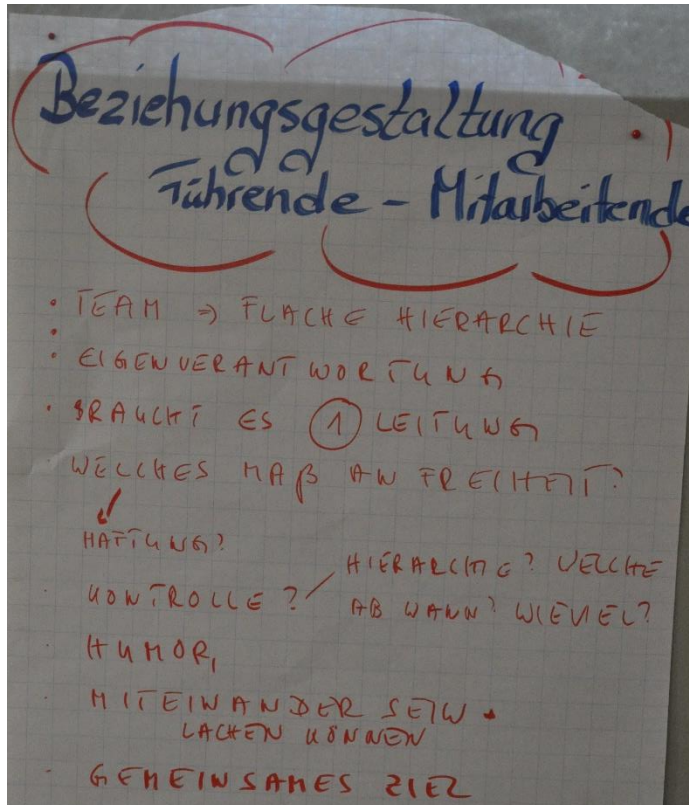 Beziehungsgestaltung
Führende - Mitarbeitende
• TEAM => FLACHE HIERARCHIE
•
• EIGENVERANTWORTUNG
• BRAUCHT ES ① LEITUNG
WELCHES MAß AN FREIHEIT?
HAFTUNG?
KONTROLLE? / HIERARCHIE? WELCHE
AB WANN? WIEVIEL?
HUMOR,
MITEINANDER SEIN •
LACHEN KÖNNEN
• GEMEINSAMES ZIEL